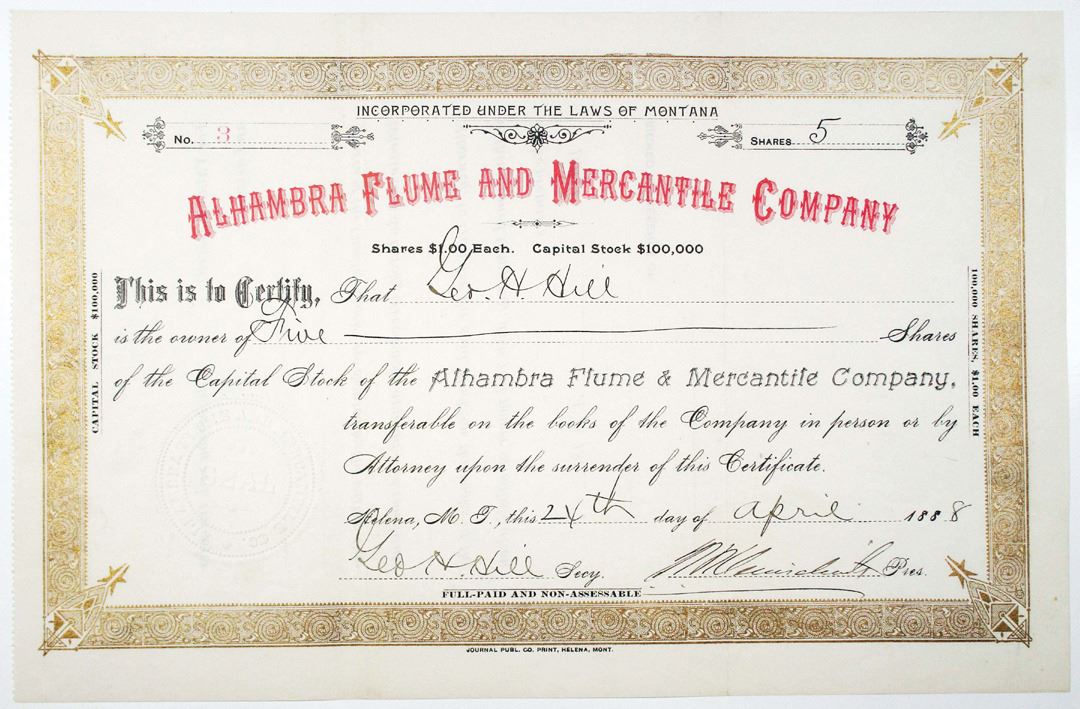 INCORPORATED UNDER THE LAWS OF MONTANA
No. 3
SHARES 5
ALHAMBRA FLUME AND MERCANTILE COMPANY
Shares $1.00 Each. Capital Stock $100,000
This is to Certify, That Geo. H. Hill
is the owner of Five Shares
of the Capital Stock of the Alhambra Flume & Mercantile Company,
transferable on the books of the Company in person or by
Attorney upon the surrender of this Certificate.
Helena, M. T., this 24th day of April 1888
Geo H. Hill Secy. Pres.
FULL-PAID AND NON-ASSESSABLE
CAPITAL STOCK $100,000
100,000 SHARES $1.00 EACH
JOURNAL PUBL. CO. PRINT, HELENA, MONT.